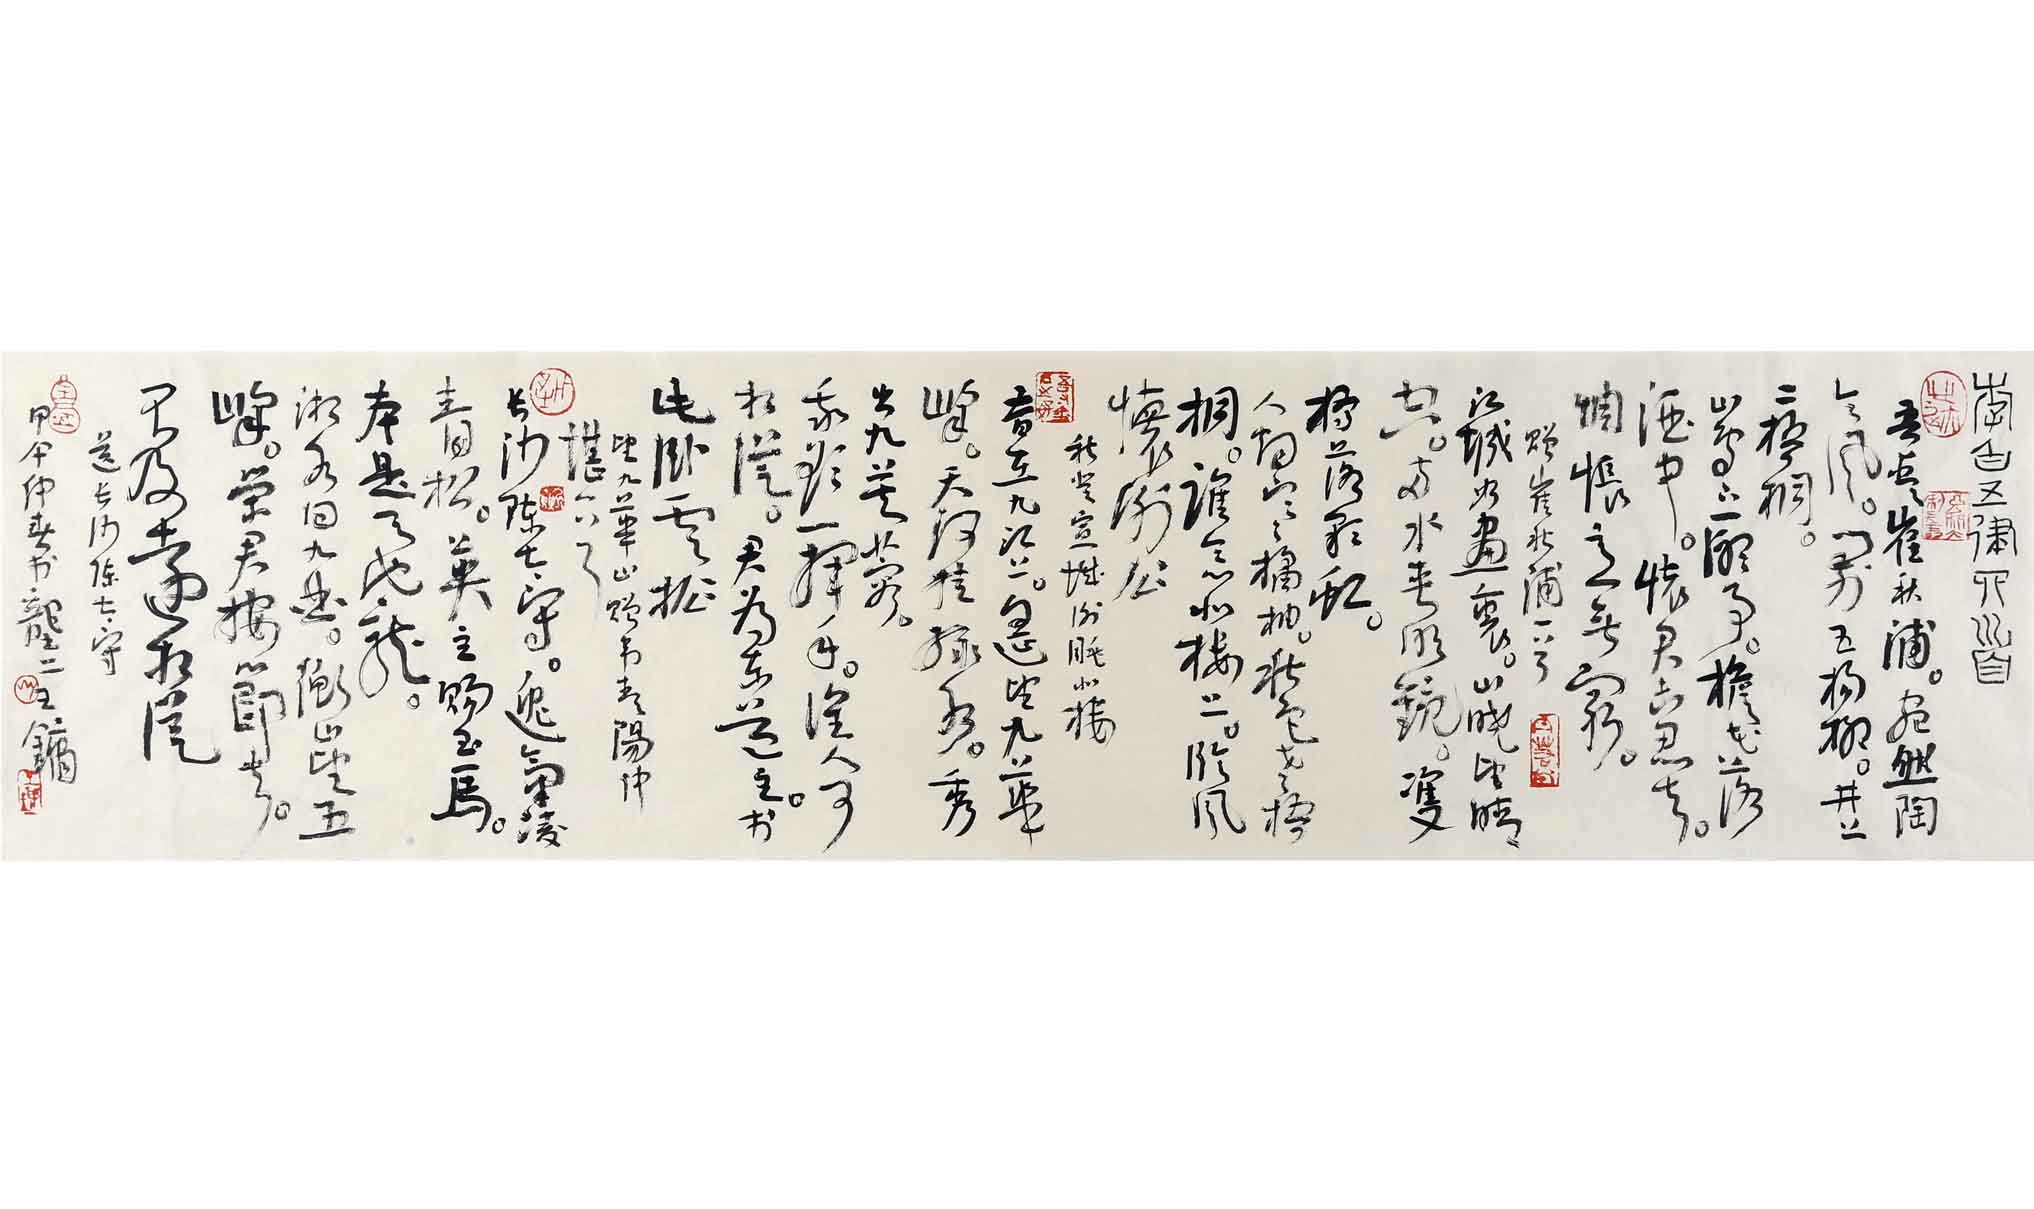 李白五律四首
吾爱崔秋浦。宛然陶
令风。门前五杨柳。井上
二梧桐。
山鸟下听事。檐花落
酒中。怀君去未忍。
惆怅意无穷。
赠崔秋浦一首
江城如画里。山晓望晴
空。两水夹明镜。双
桥落彩虹。
人烟寒橘柚。秋色老梧
桐。谁念北楼上。临风
怀谢公
秋登宣城谢朓北楼
昔在九江上。遥望九华
峰。天河挂绿水。秀
出九芙蓉。
我欲一挥手。谁人可
相从。君为东道主。于
此卧云松
望九华山赠韦青阳仲
堪
长沙陈太守。逸气凌
青松。英主赐五马。
本是天池龙。
湘水回九曲。衡山望五
峰。荣君按节去。
不及远相从
送长沙陈太守
甲午仲春书 王镛